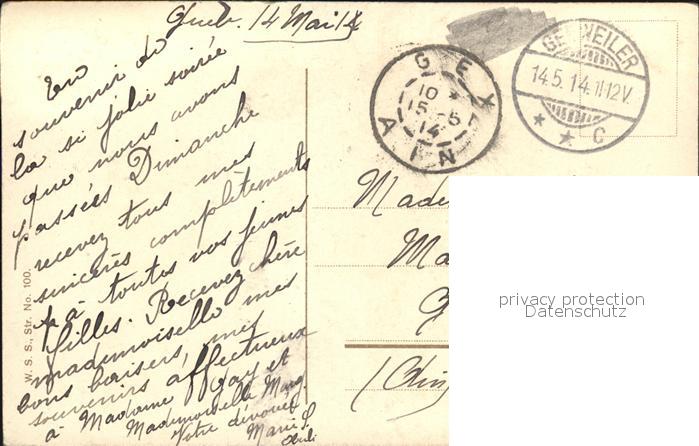 Gueb. 14 Mai 14
En
souvenir de
la si jolie soirée
que nous avons
passées Dimanche
recevez tous mes
sincères complètements
& à toutes vos jeunes
filles. Recevez chère
mademoiselle mes
bons baisers, mes
souvenirs affectueux
à Madame Gay et
Mademoiselle Marg
Votre dévouée
Marie S.
W. S. S., Str. No. 100.
GEX
10 *
15 -5
14
AIN
GEBWEILER
14.5.14.11-12V.
* * C
Made
Ma
G
(Ain
privacy protection
Datenschutz